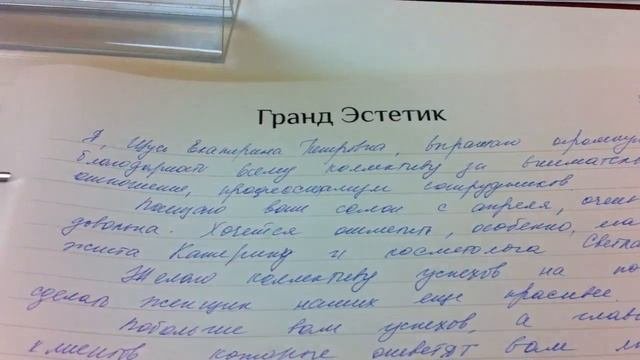 Гранд Эстетик
Я, Щусь Екатерина Петровна, выражаю огромную
благодарность всему коллективу за внимательное
отношение, профессионализм сотрудников.
Посещаю ваш салон с апреля, очень
довольна. Хочется отметить, особенно, ма
жиста Катерину и косметолога Светла
Желаю коллективу успехов на по
сделать женщин наших еще красивее.
Побольше вам успехов, а глав
клиентов которые ответят вам